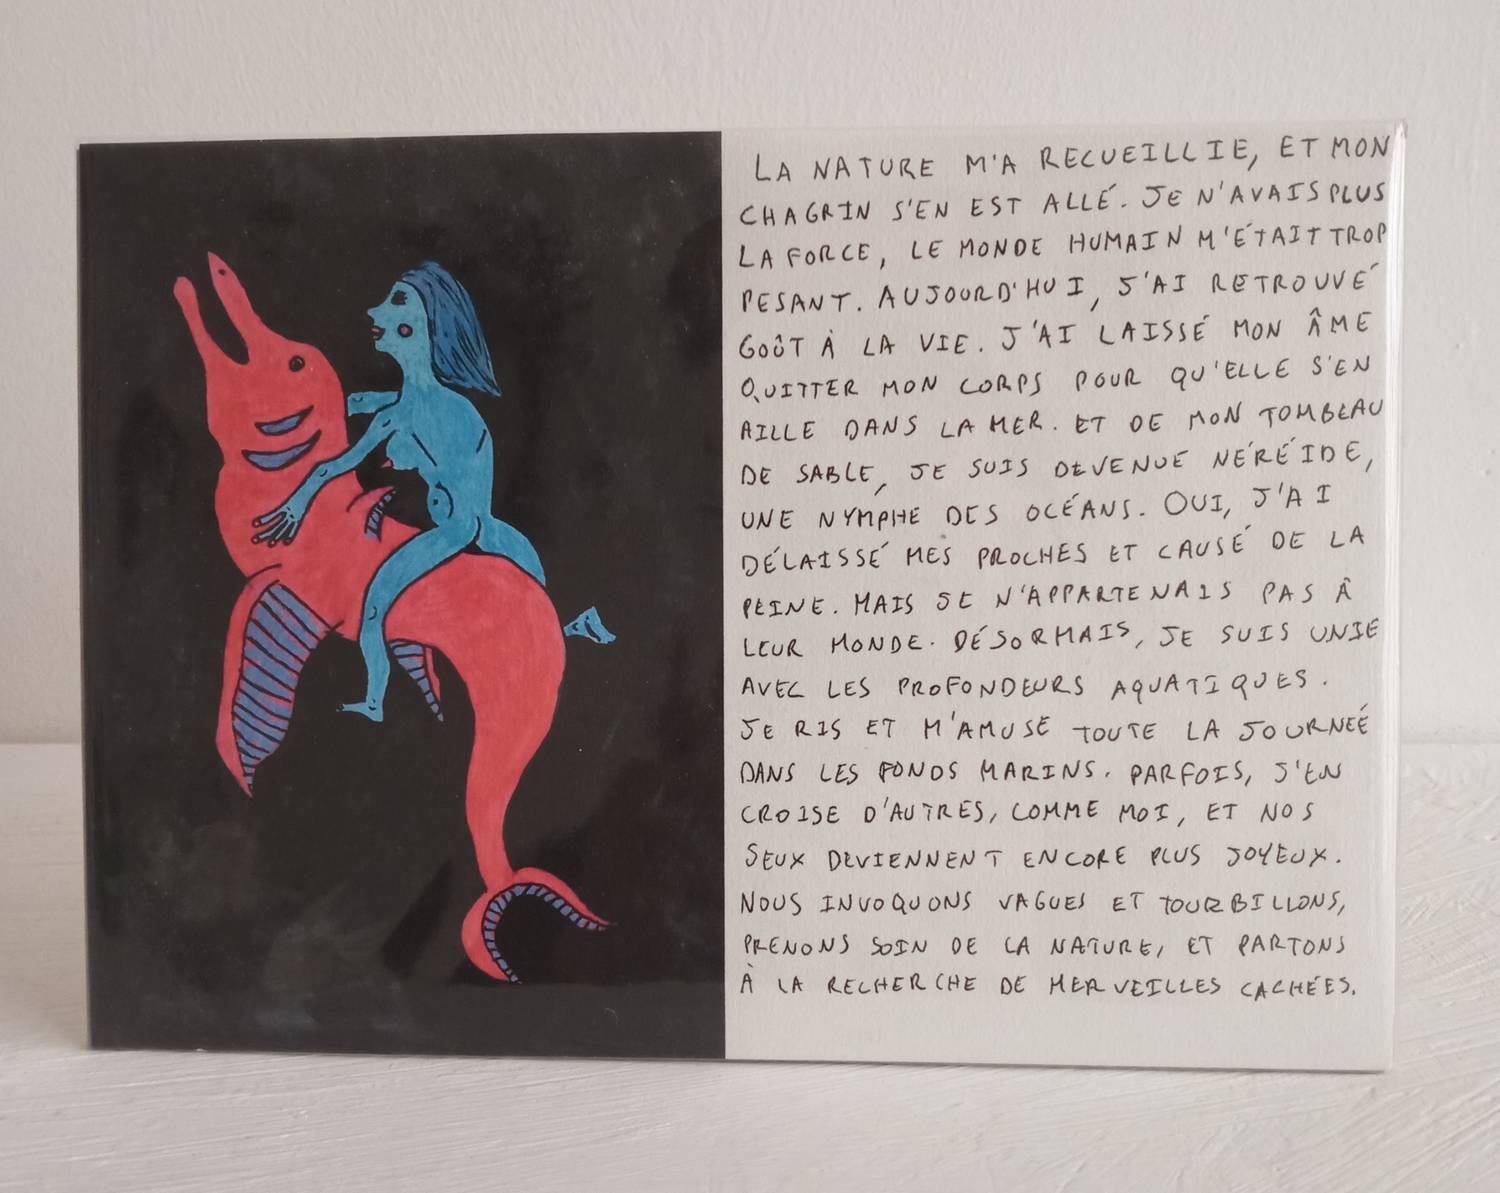 LA NATURE M'A RECUEILLIE, ET MON
CHAGRIN S'EN EST ALLÉ. JE N'AVAIS PLUS
LA FORCE, LE MONDE HUMAIN M'ÉTAIT TROP
PESANT. AUJOURD'HUI, J'AI RETROUVÉ
GOÛT À LA VIE. J'AI LAISSÉ MON ÂME
QUITTER MON CORPS POUR QU'ELLE S'EN
AILLE DANS LA MER. ET DE MON TOMBEAU
DE SABLE, JE SUIS DEVENUE NÉRÉIDE,
UNE NYMPHE DES OCÉANS. OUI, J'AI
DÉLAISSÉ MES PROCHES ET CAUSÉ DE LA
PEINE. MAIS JE N'APPARTENAIS PAS À
LEUR MONDE. DÉSORMAIS, JE SUIS UNIE
AVEC LES PROFONDEURS AQUATIQUES.
JE RIS ET M'AMUSE TOUTE LA JOURNEÉ
DANS LES FONDS MARINS. PARFOIS, J'EN
CROISE D'AUTRES, COMME MOI, ET NOS
JEUX DEVIENNENT ENCORE PLUS JOYEUX.
NOUS INVOQUONS VAGUES ET TOURBILLONS,
PRENONS SOIN DE LA NATURE, ET PARTONS
À LA RECHERCHE DE MERVEILLES CACHÉES.